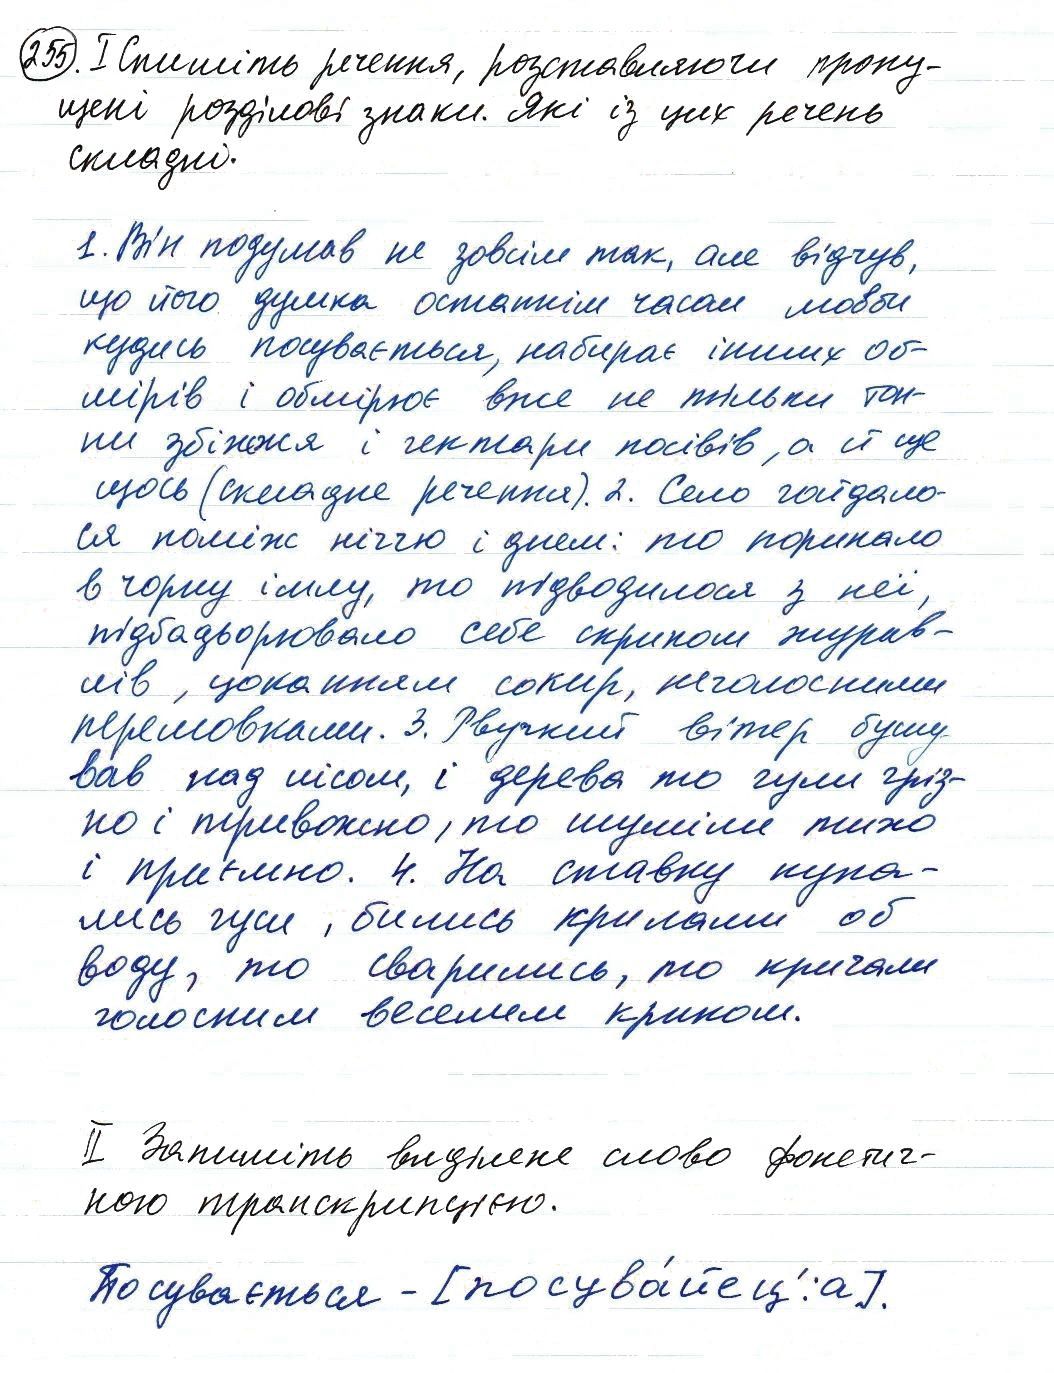 255. I Спишіть речення, розставляючи пропу-
щені розділові знаки. Які із цих речень
складні.
1. Він подумав не зовсім так, але відчув,
що його думка останнім часом мовби
кудись посувається, набирає інших об-
мірів і обмірює вже не тільки тон-
ни збіжжя і гектари посівів, а й ще
щось (складне речення). 2. Село гойдало-
ся поміж ніччю і днем: то поринало
в чорну імлу, то підводилося з неї,
підбадьорювало себе скрипом журав-
лів, цоканням сокир, неголосними
перемовками. 3. Рвучкий вітер бушу
вав над лісом, і дерева то гули гріз-
но і тривожно, то шуміли тихо
і приємно. 4. На ставку купа-
лись гуси, бились крилами об
воду, то сварились, то кричали
голосним веселим криком.
II Запишіть виділене слово фонетич-
ною транскрипцією.
Посувається - [посува́йец':а].